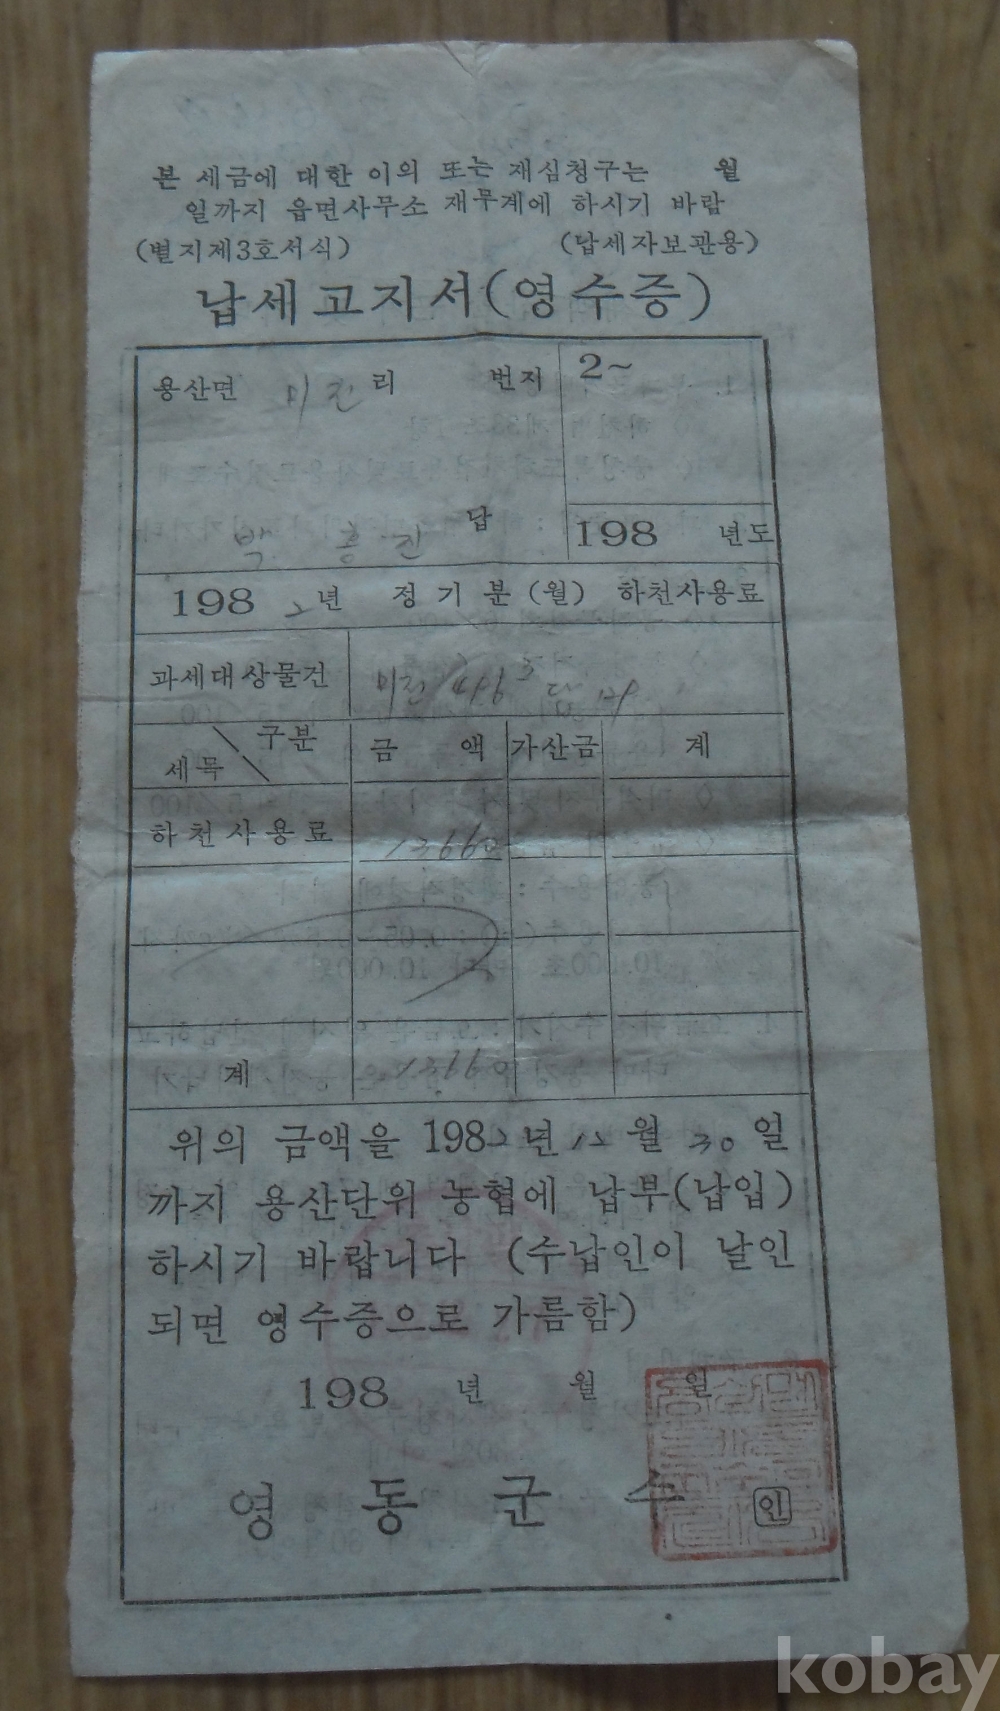 본 세금에 대한 이의 또는 재심청구는 월
일까지 읍면사무소 재무계에 하시기 바람
(별지제3호서식) (납세자보관용)
납세고지서(영수증)
용산면 미전 리 번지 2~
박 흥 진 답
198 년도
198 2 년 정기분(월) 하천사용료
과세대상물건 미전 답
구분 금 액 가산금 계
세목
하천사용료 13660
계 13660
위의 금액을 1982년 12월 30일
까지 용산단위 농협에 납부(납입)
하시기 바랍니다 (수납인이 날인
되면 영수증으로 가름함)
198 년 월 일
영 동 군 수 인
kobay